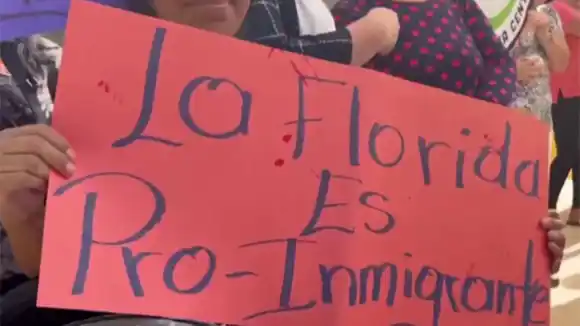 La Florida
Es
Pro-Inmigrante